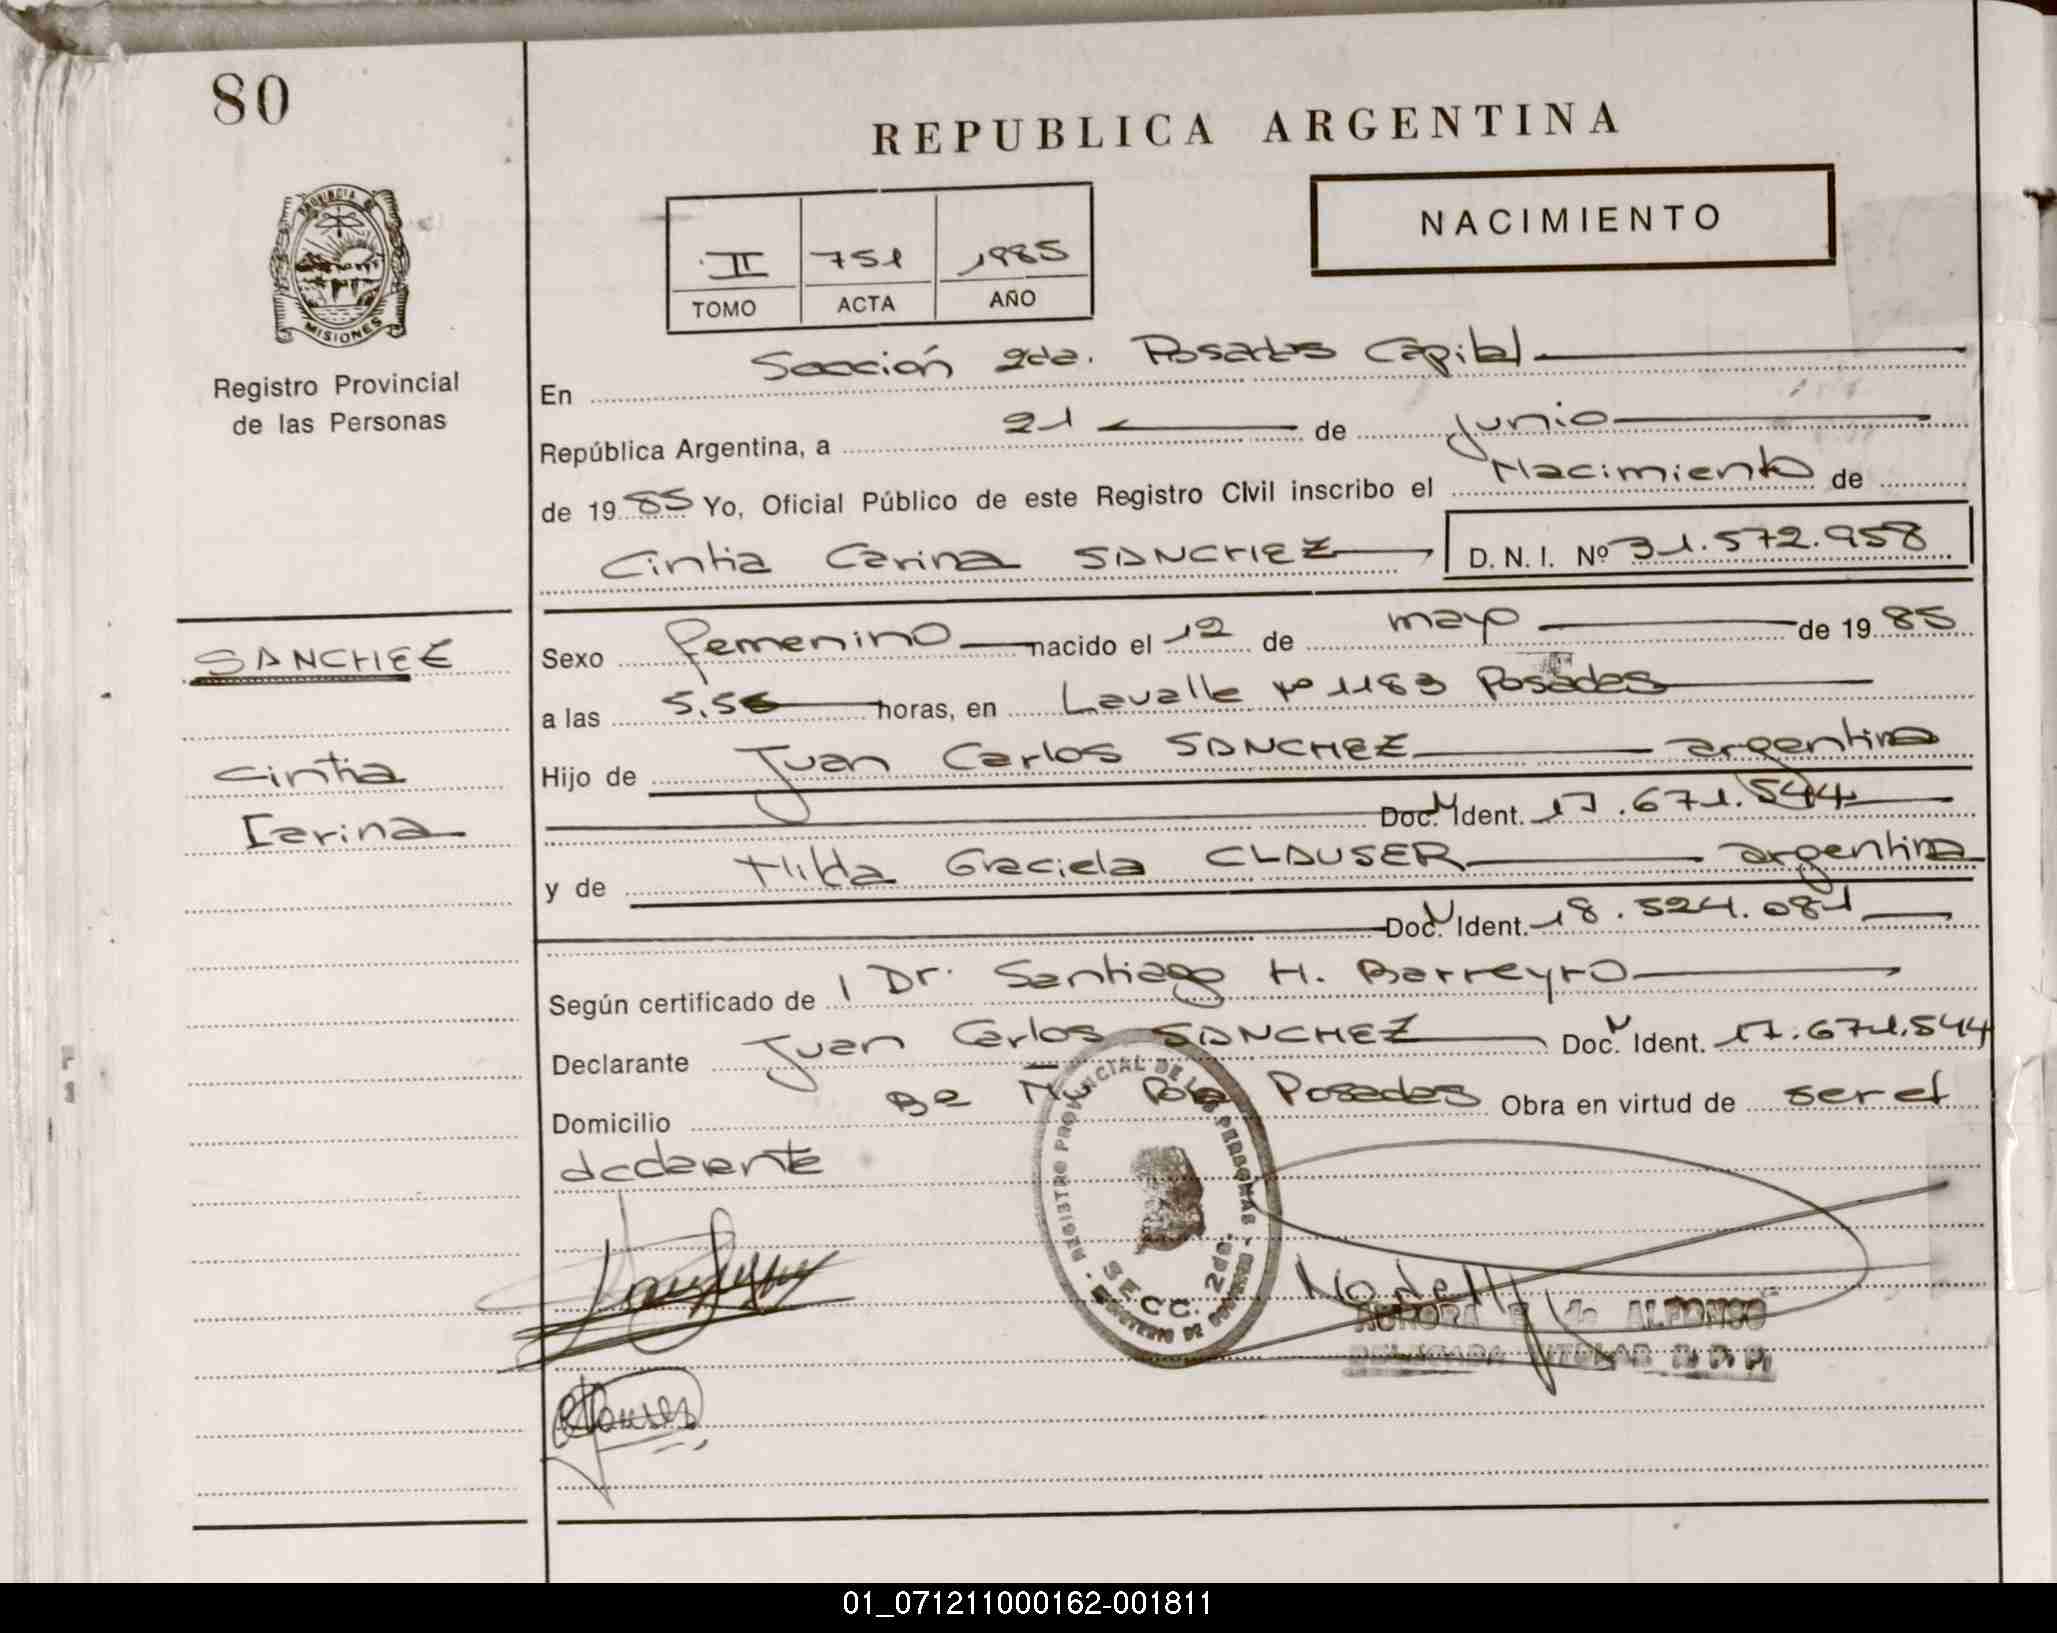 80
REPUBLICA ARGENTINA
NACIMIENTO
II 751 1985
TOMO ACTA AÑO
PROVINCIA DE MISIONES
Registro Provincial
de las Personas
En Sección 2da. Posadas Capital
República Argentina, a 21 de Junio
de 1985 Yo, Oficial Público de este Registro Civil inscribo el Nacimiento de
Cintia Carina SANCHEZ D.N.I. Nº 31.572.958
SANCHEZ
Cintia
Carina
Sexo femenino nacido el 12 de mayo de 1985
a las horas, en Lavalle Nº 1183 Posadas
Hijo de Juan Carlos SANCHEZ argentina
Doc. N Ident. 17.671.544
y de Hilda Graciela CLAUSER argentina
Doc. N Ident. 18.524.081
Según certificado de Dr. Santiago H. Barreyro
Declarante Juan Carlos SANCHEZ Doc. N Ident. 17.671.544
Domicilio Posadas Obra en virtud de ser el
declarante
REGISTRO PROVINCIAL DE LAS PERSONAS - MINISTERIO DE GOBIERNO
SECC. 2da.
AURORA E. de ALFONSO
DELEGADA TITULAR R. P. P.
01_071211000162-001811